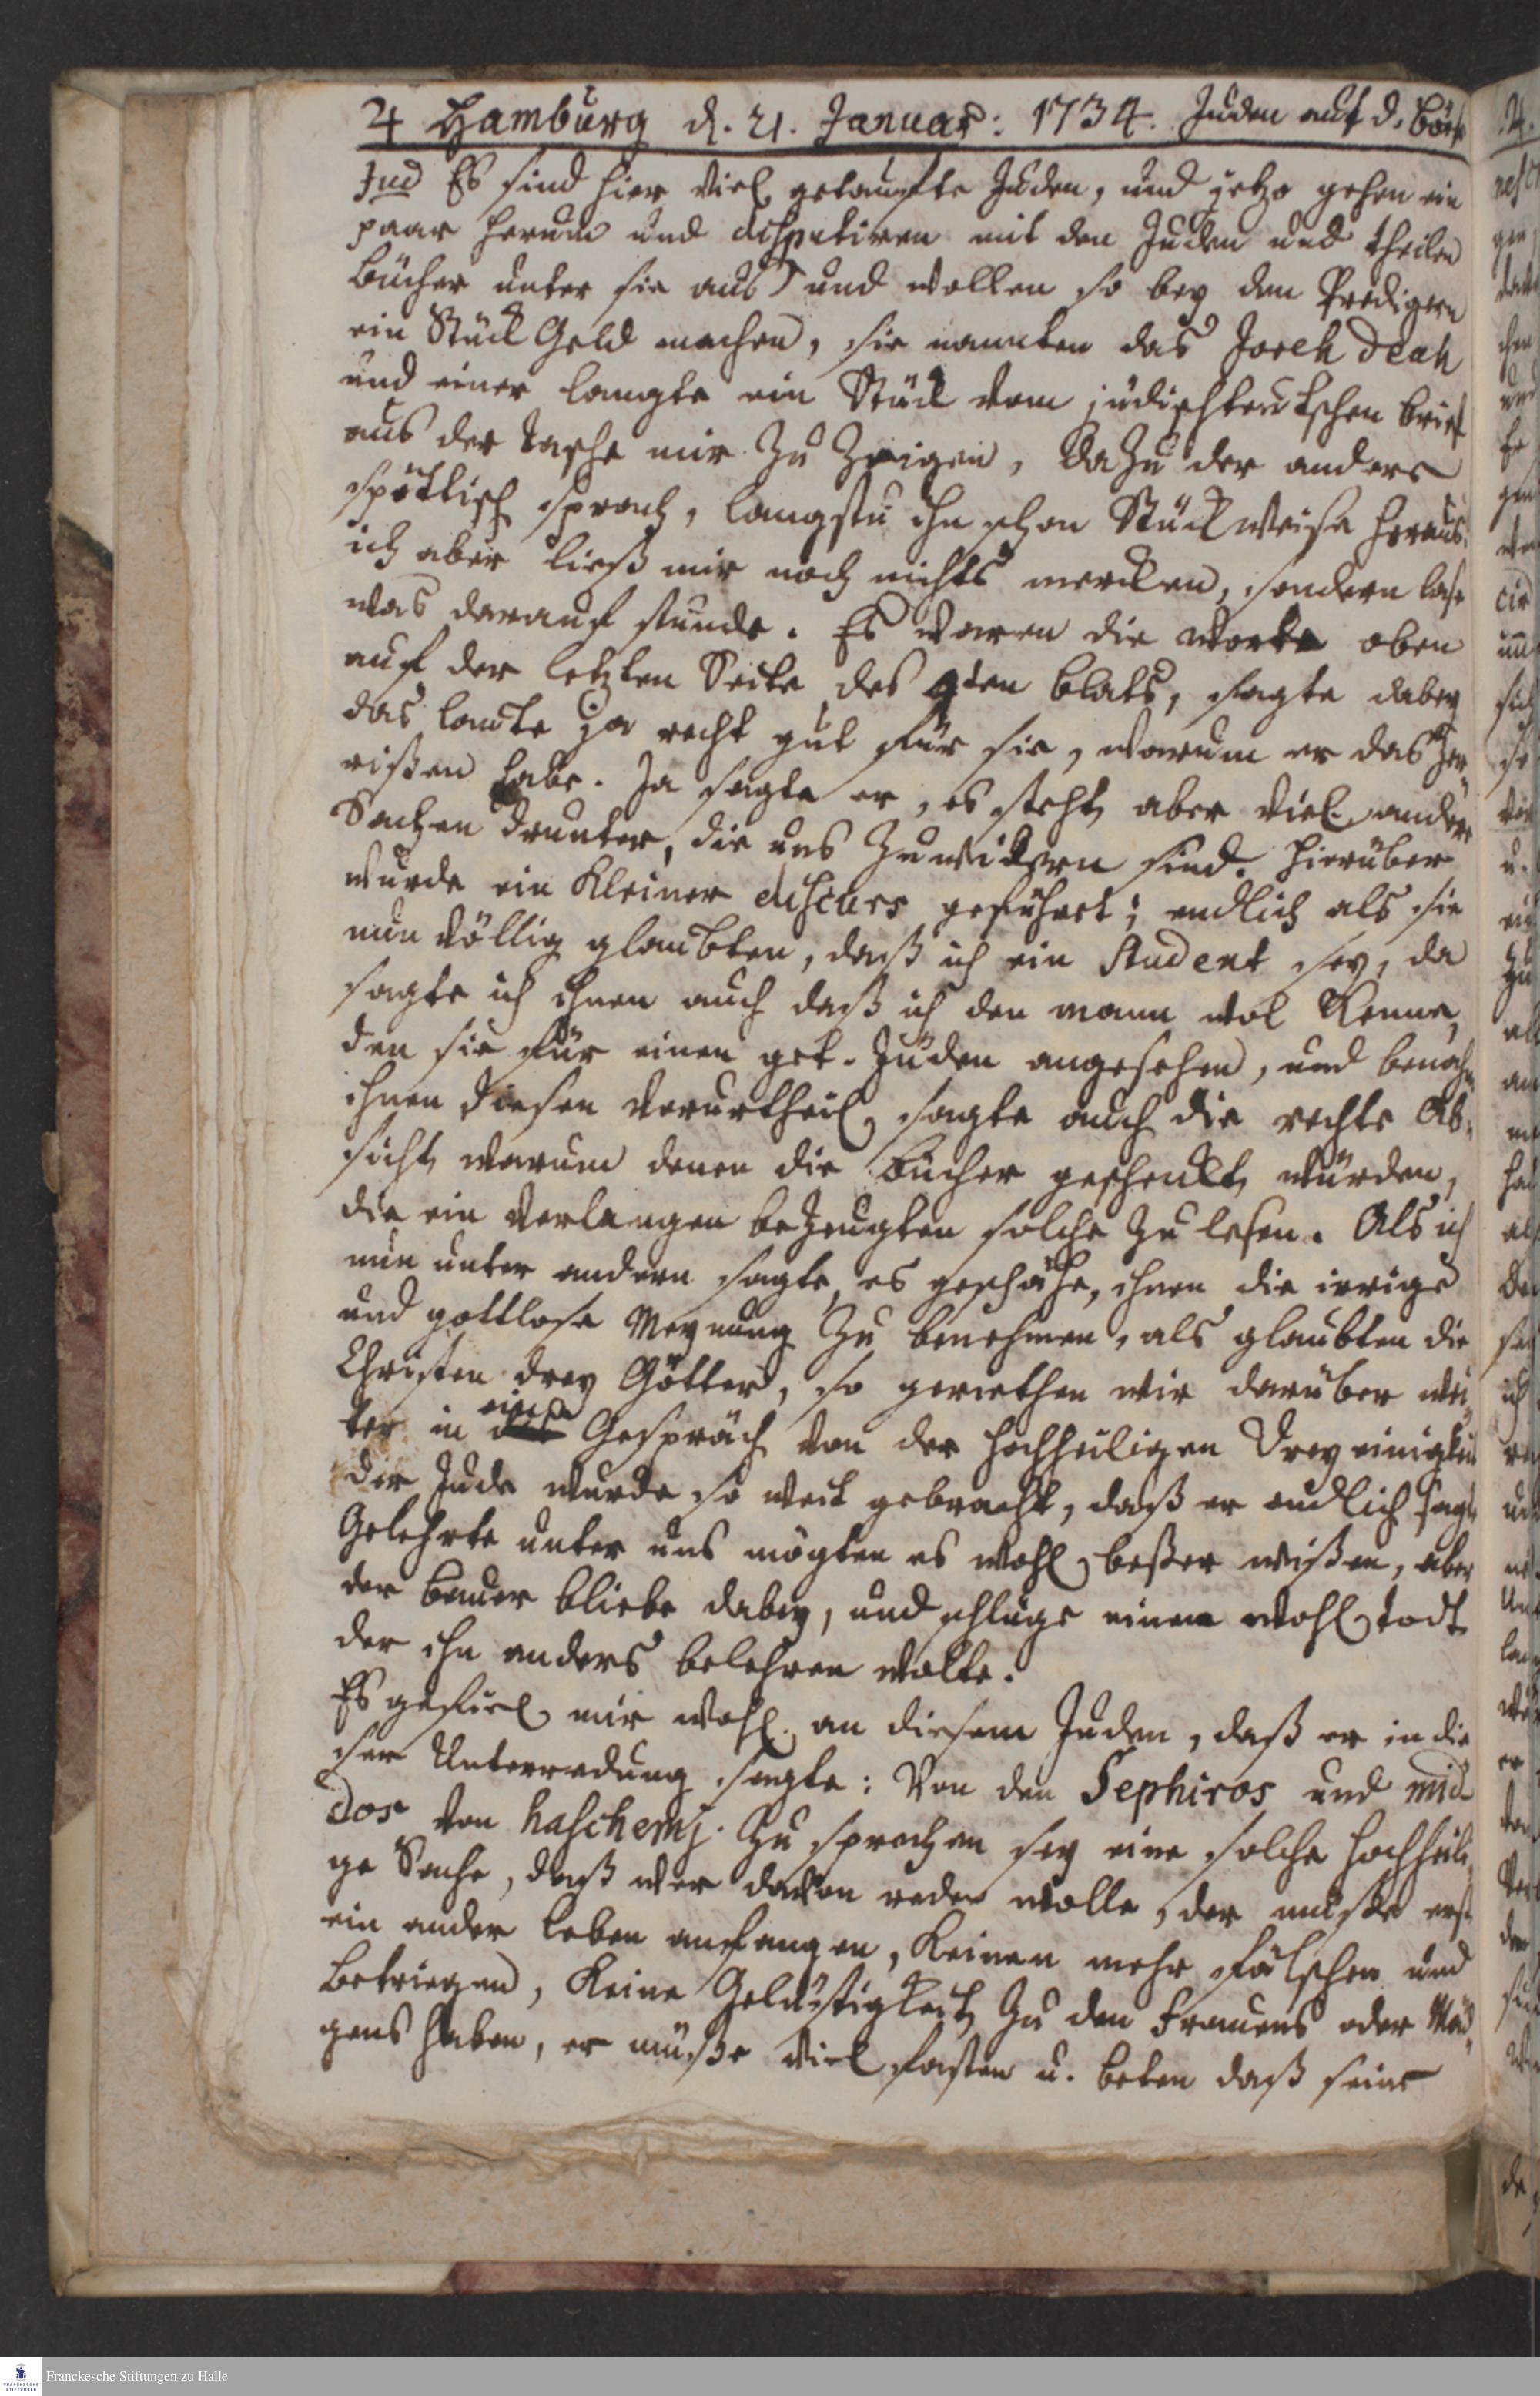 4 Hamburg d. 21. Januar: 1734. Juden auf d. Börse
Jud Es sind hier viel getauffte Juden, und jetzo gehen ein
paar herum und disputiren mit den Juden und theilen
Bücher unter sie aus und wollen so bey den Predigern
ein Stück Geld machen, sie nannten das Joreh Deah
und einer langte ein Stück vom jüdischteutschen brief
aus der Tasche mir zu zeigen, dazu der andere
spöttisch sprach, langstu ihn schon Stückweise heraus.
ich aber ließ mir noch nichts mercken, sondern lase
was darauf stunde. Es waren die worte oben
auf der letzten Seite des 4ten blats, sagte dabey
das laute ja recht gut für sie, warum er das zer-
rißen habe. Ja sagte er, es steht aber viel andere
Sachen drunter, die uns zuwidern sind. hierüber
wurde ein kleiner discurs geführet; endlich als sie
nun völlig glaubten, daß ich ein Student sey, da
sagte ich ihnen auch daß ich den mann wol kenne,
den sie für einen get. Juden angesehen, und benahm
ihnen diesen vorurtheil, sagte auch die rechte Ab-
sicht warum denen die Bücher geschenkt würden,
die ein verlangen bezeugten solche zu lesen. Als ich
nun unter andern sagte, es geschähe, ihnen die irrige
und gottlose Meynung zu benehmen, als glaubten die
Christen drey Götter, so geriethen wir darüber wei-
ter in ein Gespräch von der hochheiligen Dreyeinigkeit
der Jude wurde so weit gebracht, daß er endlich sagte
Gelehrte unter uns mögten es wohl beßer wißen, aber
der bauer bliebe dabey, und schlüge einen wohl todt
der ihn anders belehren wolte.
Es gefiel mir wohl an diesem Juden, daß er in die-
ser Unterredung sagte: Von den Sephiros und mid-
dos von haschemj. zu sprechen sey eine solche hochheili-
ge Sache, daß wer davon reden wolle, der müste erst
ein ander leben anfangen, keinen mehr fälschen und
betriegen, keine Gelüstigkeit zu den Frauens oder Mäd-
gens haben, er müße viel fasten u. beten daß seine
Franckesche Stiftungen zu Halle